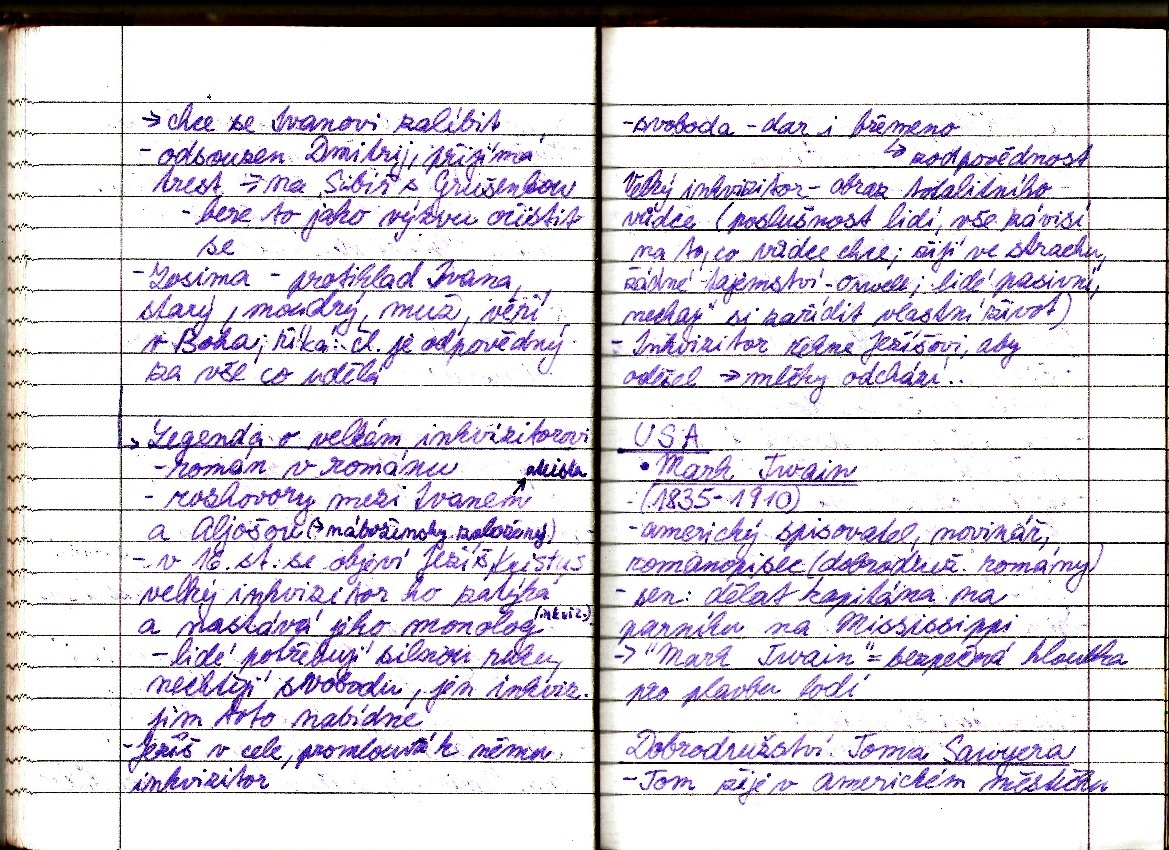 → chce se Ivanovi zalíbit
- odsouzen Dmitrij, přijímá
trest → na Sibiř s Grušenkou
- bere to jako výzvu očistit
se
- Zosima - protiklad Ivana,
starý, moudrý, muž, věří
v Boha; říká: čl. je odpovědný
za vše co udělá
→ Legenda o velkém inkvizitorovi
- román v románu
ateista
- rozhovory mezi Ivanem
a Aljošou (→ nábožensky založený)
- v 16. st. se objeví Ježíš Kristus
velký inkvizitor ho zatýká
(inkviz.)
a nastává jeho monolog
- lidé potřebují silnou ruku,
nechtějí svobodu, jen inkviz.
jim toto nabídne
- Ježíš v cele, promlouvá k němu
inkvizitor
- svoboda - dar i břemeno
↳ zodpovědnost
Velký inkvizitor - obraz totalitního
vůdce (poslušnost lidí, vše závisí
na to, co vůdce chce; žijí ve strachu,
žádné tajemství - Orwell; lidé pasivní,
nechají si zařídit vlastní život)
- Inkvizitor řekne Ježíšovi, aby
odešel → mlčky odchází..
USA
• Mark Twain
- (1835-1910)
- americký spisovatel, novinář,
romanopisec (dobrodruž. romány)
- sen: dělat kapitána na
parníku na Mississippi
→ "Mark Twain" = bezpečná hloubka
pro plavbu lodí
Dobrodružství Toma Sawyera
- Tom žije v americkém městečku